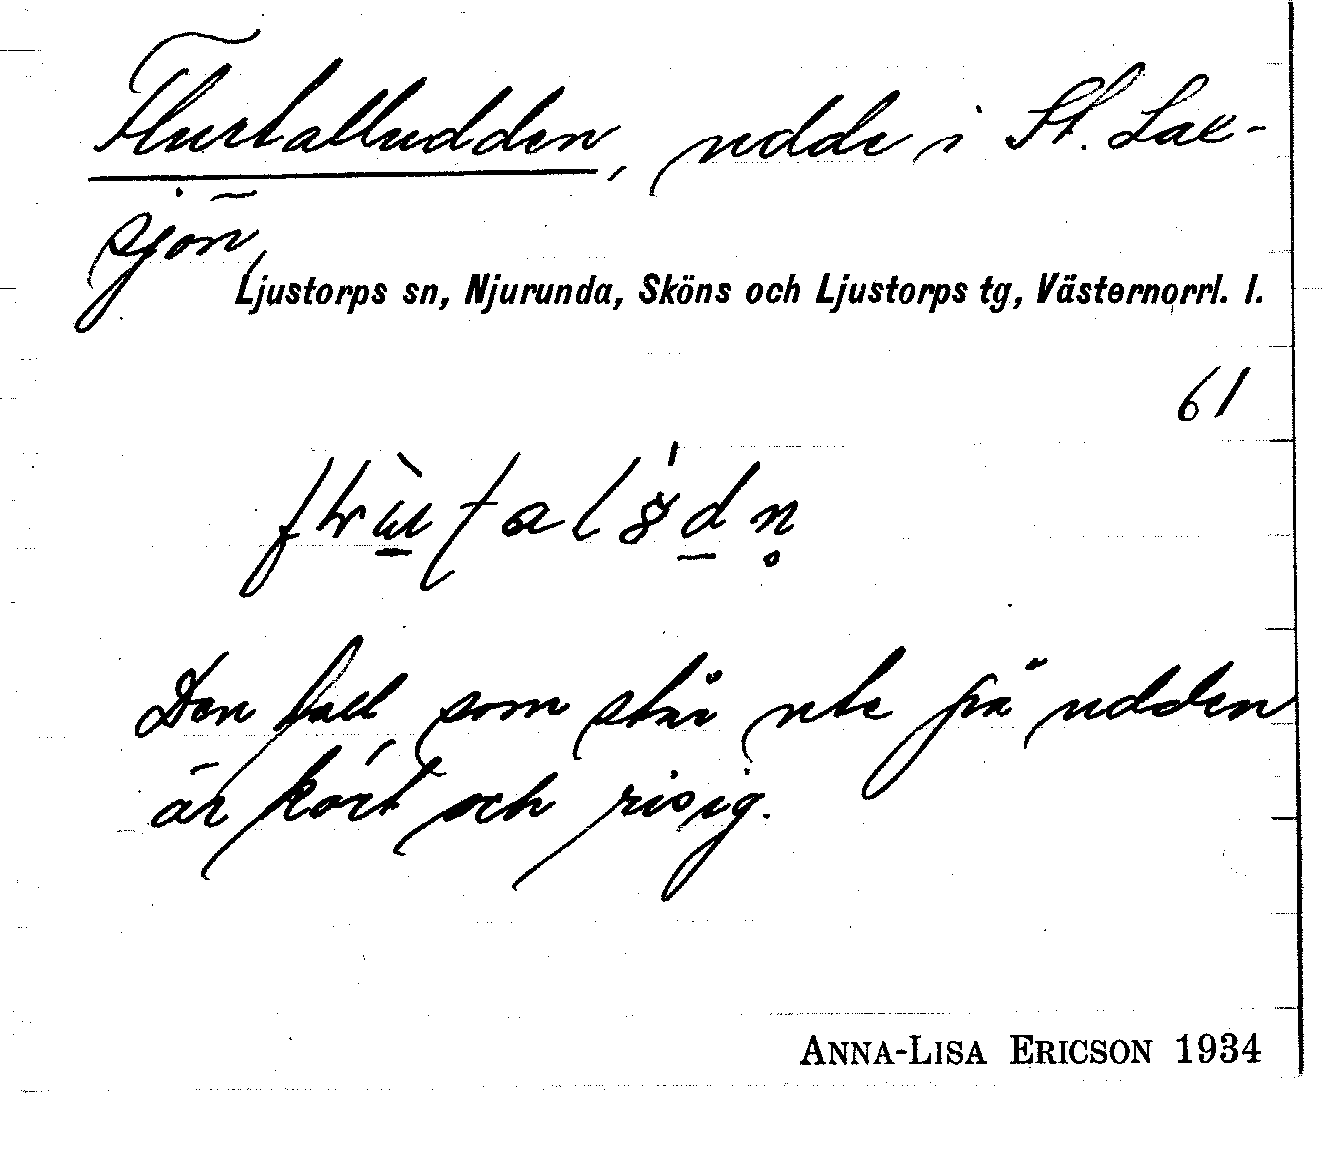 Flurtalludden, udde i St. Lax-
sjön,
Ljustorps sn, Njurunda, Sköns och Ljustorps tg, Västernorrl. l.
61
Den tall, som står ute på udden
är kort och risig.
ANNA-LISA ERICSON 1934